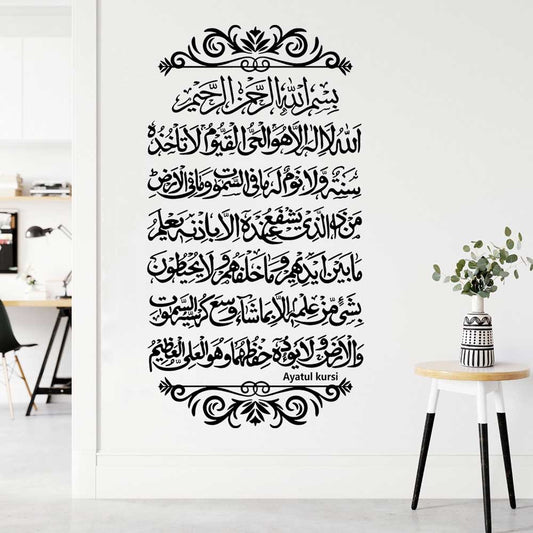 بِسْمِ اللهِ الرَّحْمٰنِ الرَّحِيْمِ
اَللهُ لَا اِلٰهَ اِلَّا هُوَ الْحَیُّ الْقَيُّوْمُ لَا تَأْخُذُهٗ
سِنَةٌ وَّلَا نَوْمٌ لَهٗ مَا فِی السَّمٰوٰتِ وَمَا فِی الْاَرْضِ
مَنْ ذَا الَّذِیْ يَشْفَعُ عِنْدَهٗ اِلَّا بِاِذْنِهٖ يَعْلَمُ
مَا بَيْنَ اَيْدِيْهِمْ وَمَا خَلْفَهُمْ وَلَا يُحِيْطُوْنَ
بِشَیْءٍ مِّنْ عِلْمِهٖ اِلَّا بِمَا شَاءَ وَسِعَ كُرْسِيُّهُ السَّمٰوٰتِ
وَالْاَرْضَ وَلَا يَـُٔوْدُهٗ حِفْظُهُمَا وَهُوَ الْعَلِیُّ الْعَظِيْمُ
Ayatul kursi